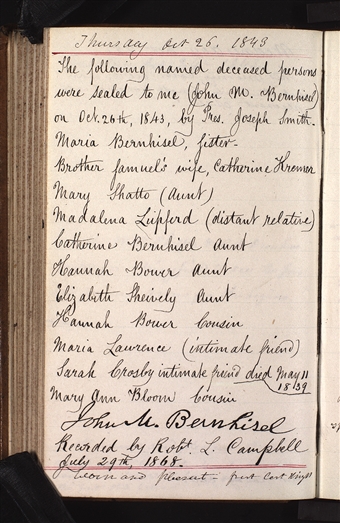 Thursday Oct 26. 1843
The following named deceased persons
were sealed to me (John M. Bernhisel)
on Oct. 26th, 1843, by Pres. Joseph Smith.
Maria Bernhisel, Sister.
Brother Samuel's wife, Catherine Kremer
Mary Shatto (Aunt)
Madalena Lupferd (distant relative)
Catherine Bernhisel Aunt
Hannah Bower Aunt
Elizabeth Sheively Aunt
Hannah Bower Cousin
Maria Lawrence (intimate friend)
Sarah Crosby intimate friend died May 11
1839
Mary Ann Bloom Cousin
John M. Bernhisel
Recorded by Robt. L. Campbell
July 29th, 1868.
and pleasant